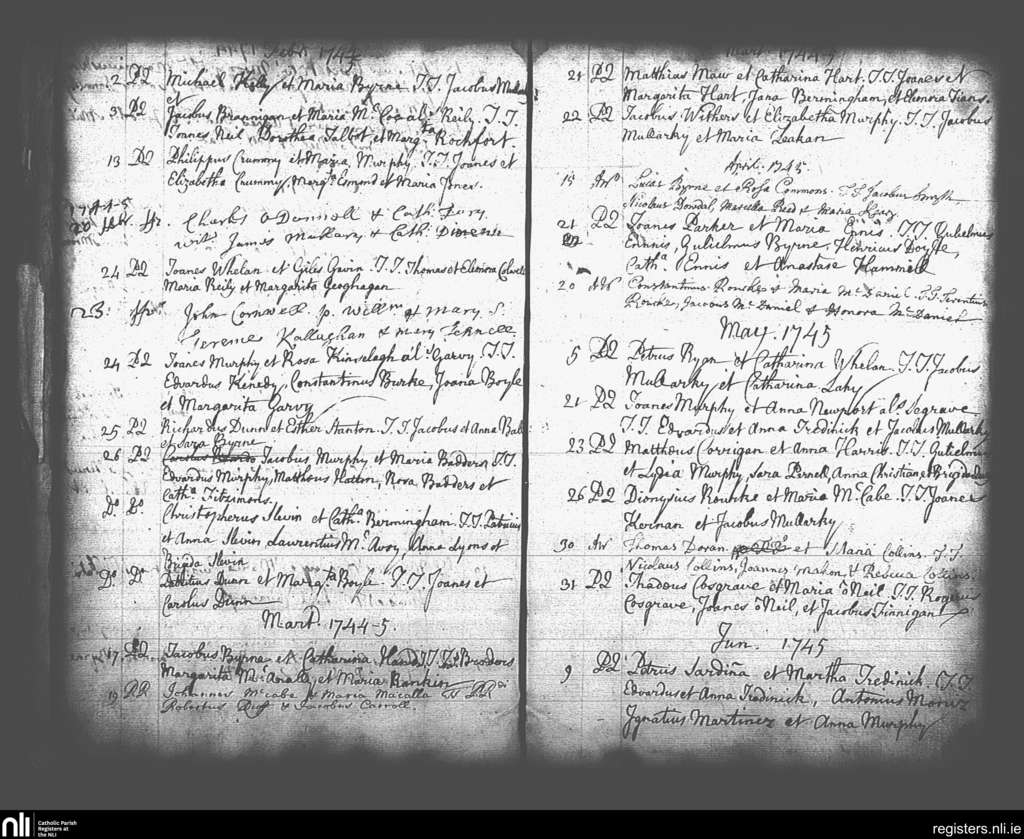 Febr. 1744
2 PD Michael Kelly et Maria Byrne T.T. Jacobus
et
3 PD Jacobus Brannigan et Maria Mc Coo als Reily. T.T.
Joanes Neil, Dorothea Talbot et Margta Rochfort.
13 PD Philippus Crummy et Maria Murphy. T.T. Joanes et
Elizabetha Crummy, Margta Esmond et Maria Jones.
1744-5
20 febr. Charles O Donnoll & Cath: Dory
witn. James Mullary & Cath: Dinense
24 PD Joanes Whelan et Giles Gavin. T.T. Thomas et Elenora
Maria Reily et Margarita Geoghagan
23. John Cornwell p. Willm & Mary S.
Terence Kallaghan & Mary
24 PD Joanes Murphy et Rosa Kinselagh als Garvy. T.T.
Edvardus Kenedy, Constantinus Burke, Joana Boyle
et Margarita Garvy
25 PD Richardus Dunn et Esther Stanton. T.T. Jacobus et Anna
et Sara Byrne
26 PD Jacobus Murphy et Maria Badders T.T.
Edvardus Murphy, Matthous Hatton, Rosa Badders et
Catha Fitzimons.
Do Do Christopherus Slevin et Catha Bermingham. T.T. Patricius
et Anna Slevin Laurentius Mc Avoy, Anna Lyons et
Brigida Slevin
Do Do Patritius Dunn et Margta Boyle. T.T. Joanes et
Carolus Dunn
Mart. 1744-5.
17 PD Jacobus Byrne et Catharina T.T.
Margarita Mc Anally et Maria Rankin
19 PD Johannes McCabe & Maria Macalla Ts
Robertus Duff & Jacobus Carroll.
Mart. 1744-5
21 PD Matthias Maw et Catharina Hart. T.T. Joanes et
Margarita Hart, Jara Bermingham, et Elenoria
22 PD Jacobus Withers et Elizabetha Murphy. T.T. Jacobus
Mullarky et Maria Leahan
April. 1745
15 Lucas Byrne et Rosa Commons. T.S. Jacobus Smyth,
Nicolaus Dowdal, Marcella Reed & Maria
21 PD Joanes Parker et Maria Ennis. T.T. Gulielmus
Ennnis, Gulielmus Byrne, Henricus Doyle,
Catha Ennis et Anastase Hammell
20 Constantinus Rourke & Maria Mc Daniel. T.S. Terentius
Rourke, Jacobus Mc Daniel & Honora Mc Daniel
May. 1745
5 PD Petrus Ryan et Catharina Whelan. T.T. Jacobus
Mullarky et Catharina Lahy
21 PD Joanes Murphy et Anna Newport als Segrave
T.T. Edvardus et Anna Fredinick et Jacobus Mullarky
23 PD Matthous Corrigan et Anna Harris. T.T. Gulielmus
et Lydia Murphy, Sara Pernell, Anna Christian, et Brigida
26 PD Dionysius Rourke et Maria Mc Cabe. T.T. Joanes
Kernan et Jacobus Mullarky
30 Thomas Doran et Maria Collins. T.T.
Nicolaus Collins, Joannes Mahon, & Rebecca Collins.
31 PD Thadous Cosgrave et Maria o Neil. T.T. Rogerius
Cosgrave, Joanes o Neil, et Jacobus Finnigan
Jun. 1745
9 PD Petrus Sardiña et Martha Fredinick. T.T.
Edvardus et Anna Fredinick, Antonius
Ignatius Martinez et Anna Murphy
nli Catholic Parish
Registers at
the NLI
registers.nli.ie